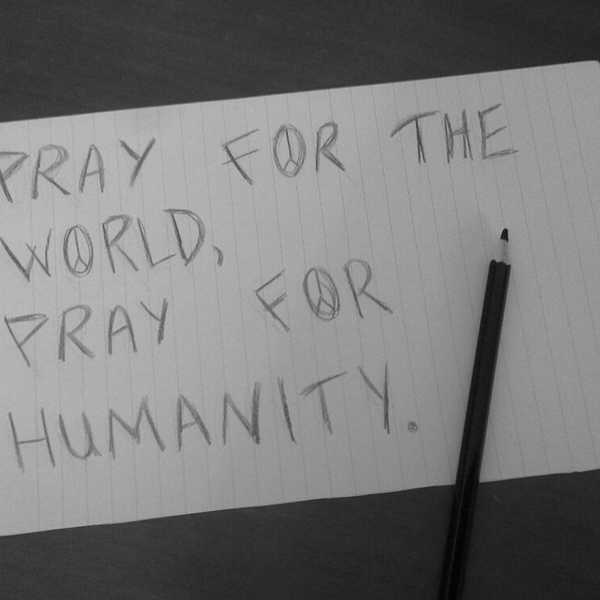 PRAY FOR THE
WORLD,
PRAY FOR
HUMANITY.